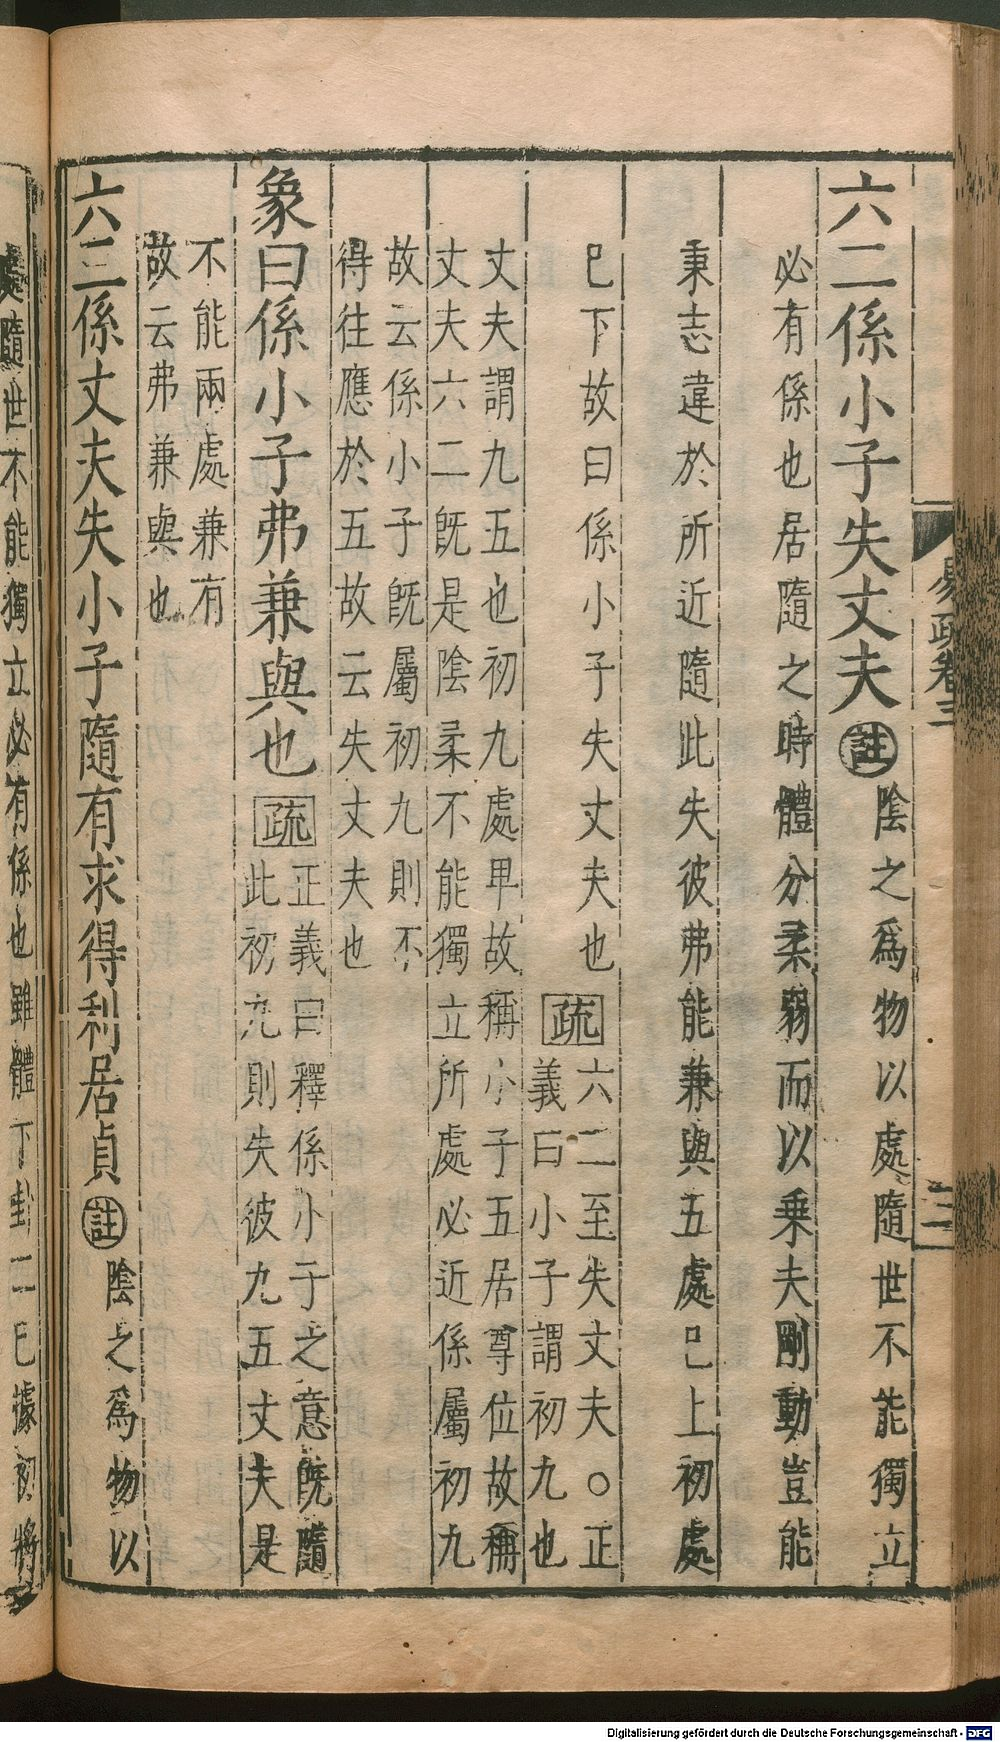 易疏卷三
六二係小子失丈夫註陰之爲物以處隨世不能獨立
必有係也居隨之時體分柔弱而以乗夫剛動豈能
秉志違於所近隨此失彼弗能兼與五處已上初處
已下故曰係小子失丈夫也疏六二至失丈夫○正
義曰小子謂初九也
丈夫謂九五也初九處卑故稱小子五居尊位故稱
丈夫六二旣是陰柔不能獨立所處必近係屬初九
故云係小子旣屬初九則不
得往應於五故云失丈夫也
象曰係小子弗兼與也疏正義曰釋係小子之意旣隨
此初九則失彼九五丈夫是
不能兩處兼有
故云弗兼與也
六三係丈夫失小子隨有求得利居貞註陰之爲物以
處隨世不能獨立必有係也雖體下卦二已據初將
Digitalisierung gefördert durch die Deutsche Forschungsgemeinschaft - DFG